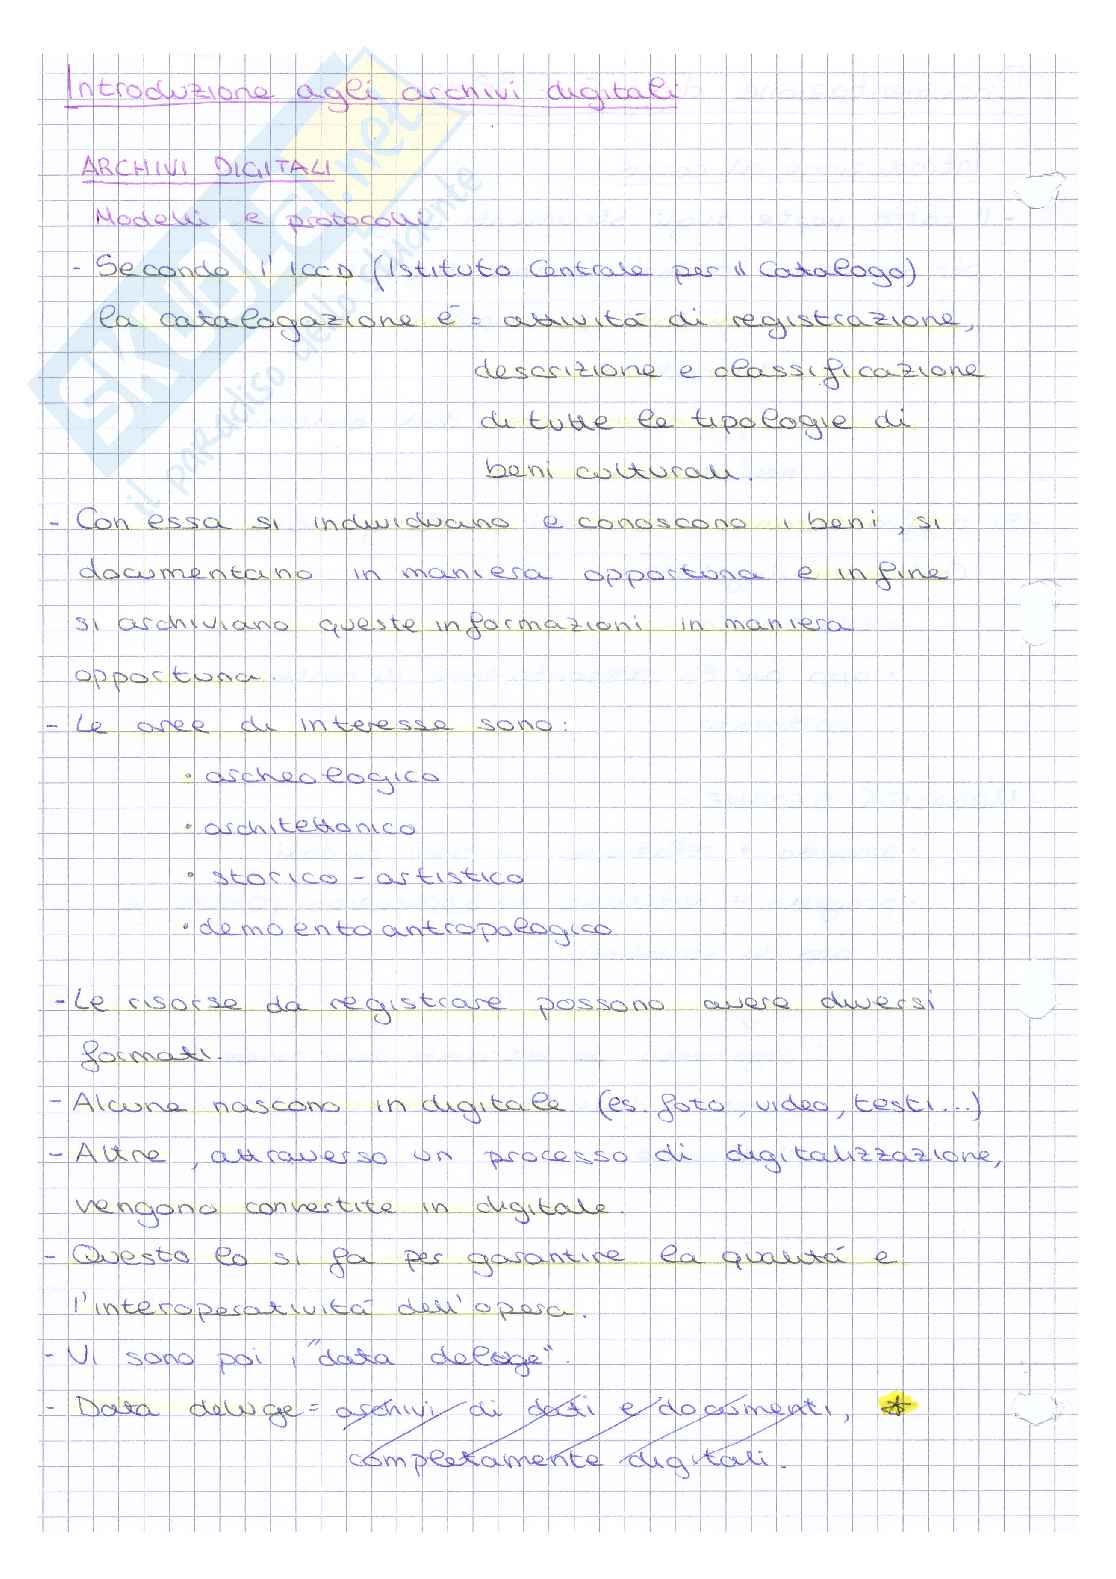 Introduzione agli archivi digitali
ARCHIVI DIGITALI
Modelli e protocolli
- Secondo l'ICCD (Istituto Centrale per il Catalogo)
la catalogazione é = attivitá di registrazione,
descrizione e classificazione
di tutte le tipologie di
beni culturali.
- Con essa si individuano e conoscono i beni, si
documentano in maniera opportuna e infine
si archiviano queste informazioni in maniera
opportuna.
- Le aree di interesse sono:
• archeologico
• architettonico
• storico - artistico
• demoentoantropologico
- Le risorse da registrare possono avere diversi
formati.
- Alcune nascono in digitale (es. foto, video, testi...)
- Altre, attraverso un processo di digitalizzazione,
vengono convertite in digitale.
- Questo lo si fa per garantire la qualitá e
l'interoperativitá dell'opera.
- Vi sono poi i "data deluge".
- Data deluge = archivi di dati e documenti, *
completamente digitali.
SKUOLA.net
il paradiso dello studente